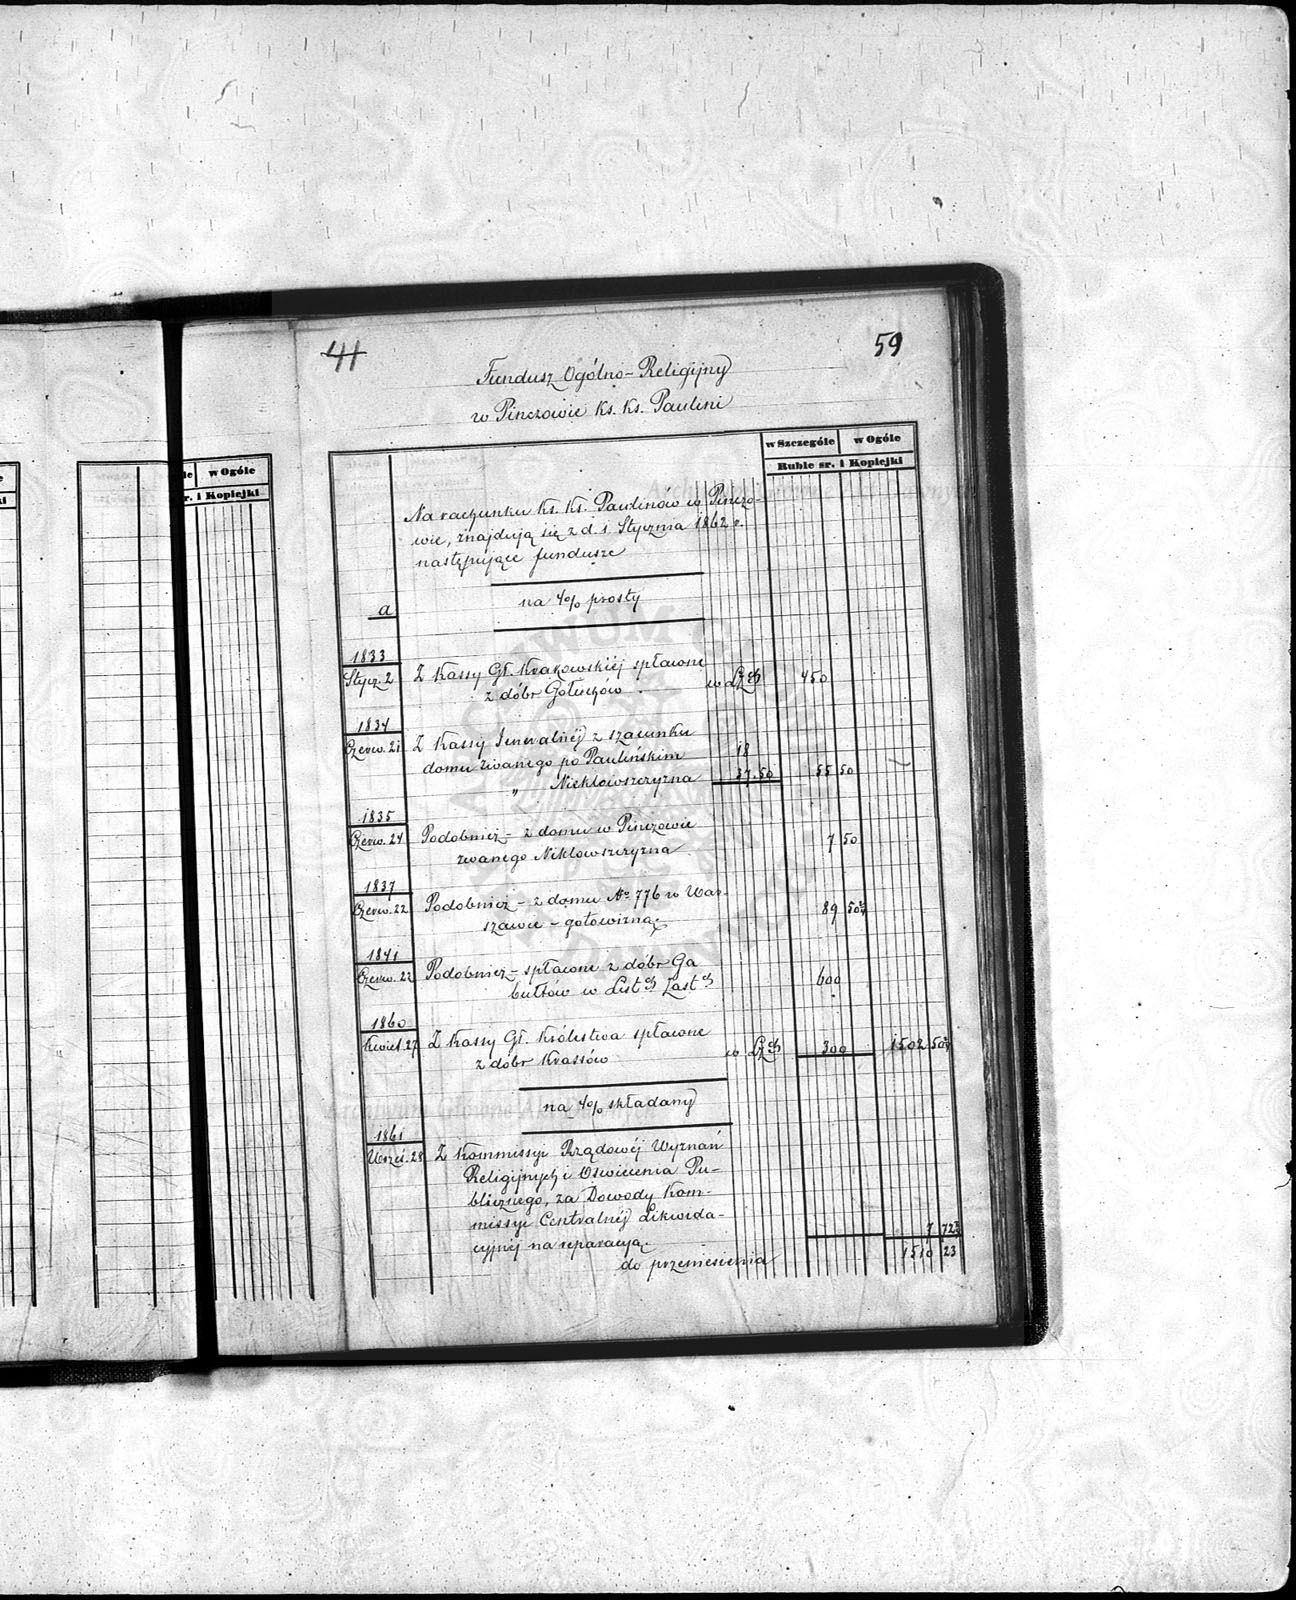 41
59
Fundusz Ogólno-Religijny
w Pinczowie Ks. Ks. Paulini
w Szczególe w Ogóle
Ruble sr. i Kopiejki
w Ogóle
r. i Kopiejki
Na rachunku Ks. Ks. Paulinów w Pinczo-
wie, znajdują się z d. 1 Stycznia 1862 r.
następujące fundusze
a na 4% prosty
1833
Stycz. 2 Z Kassy Gł. Krakowskiéj spłacone
z dóbr Gołuchów w L. Z.ch 450
1834
Czerw. 21 Z Kassy Jeneralnéj z szacunku
domu zwanego po Paulińskim 18
„ Nieklowszczyzna 37.50 55 50
1835
Czerw. 24 Podobnież - z domu w Pinczowie
zwanego Niklowszczyzna 7 50
1837
Czerw. 22 Podobnież - z domu No 776 w War-
szawie - gotowizną. 89 50
1841
Czerw. 22 Podobnież - spłacone z dóbr Ga
bułtów w List.ch Zast.ch 600
1860
Kwiet. 27 Z Kassy Gł. Królestwa spłacone
z dóbr Krassów w L. Z.ch 300 1502 50
na 4% składany
1861
Wrześ. 28 Z Kommissyi Rządowéj Wyznań
Religijnych i Oswiecenia Pu-
blicznego, za Dowody Kom-
missyi Centralnéj Likwida-
cyjnéj na reparacyą. 7 72
do przeniesienia 1510 23